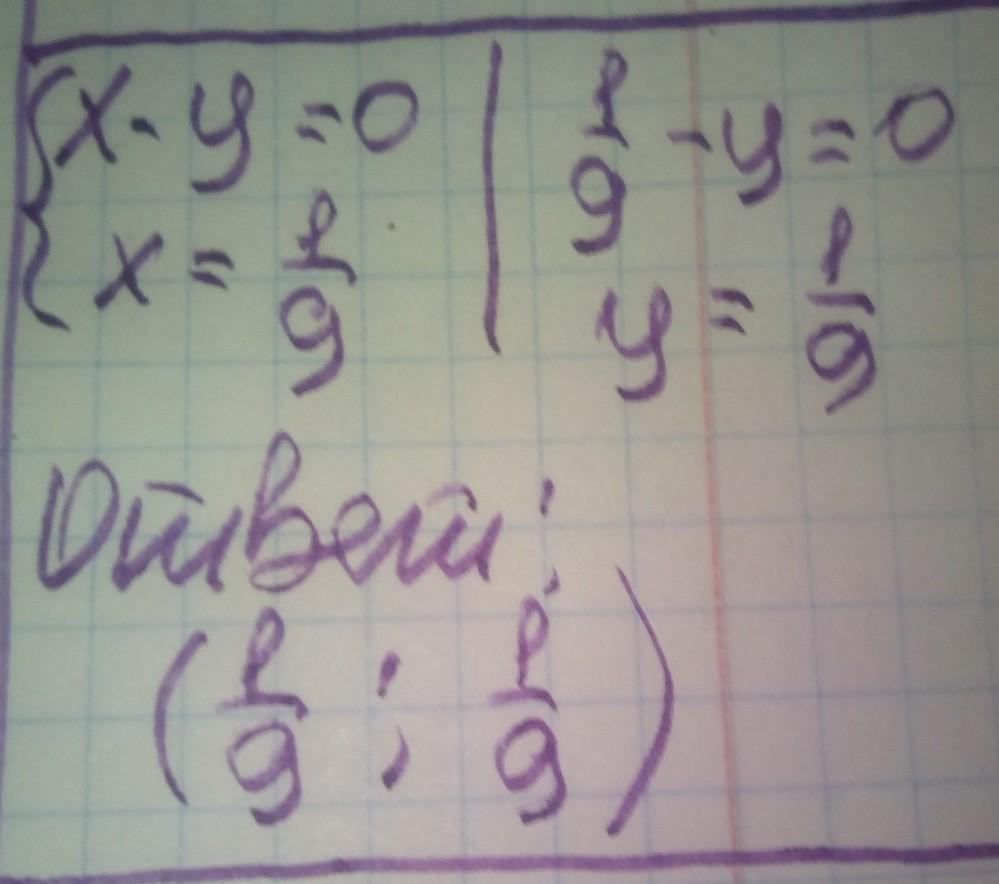 x - y = 0
x = 1/9
1/9 - y = 0
y = 1/9
Ответ:
(1/9 ; 1/9)